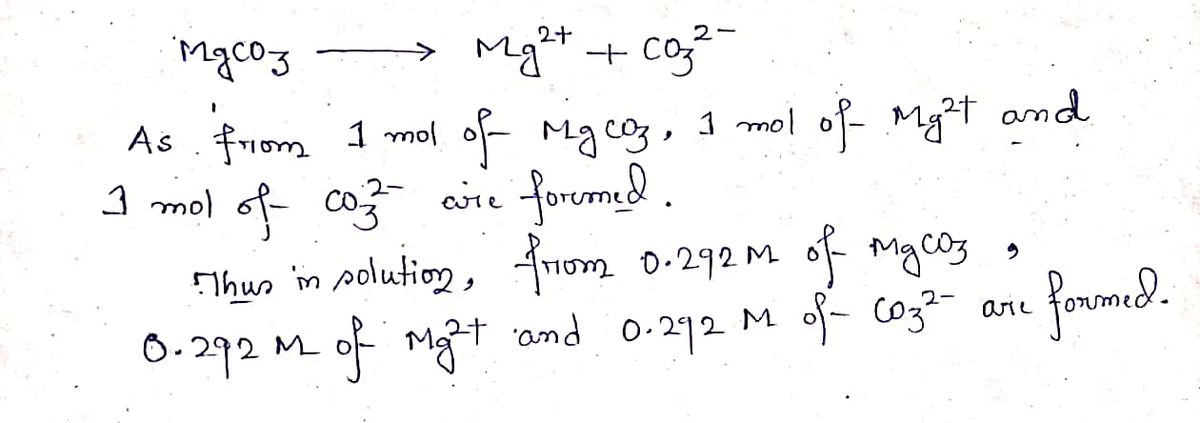 MgCO₃ ⟶ Mg²⁺ + CO₃²⁻
As from 1 mol of MgCO₃, 1 mol of Mg²⁺ and
1 mol of CO₃²⁻ are formed.
Thus in solution, from 0.292 M of MgCO₃,
0.292 M of Mg²⁺ and 0.292 M of CO₃²⁻ are formed.